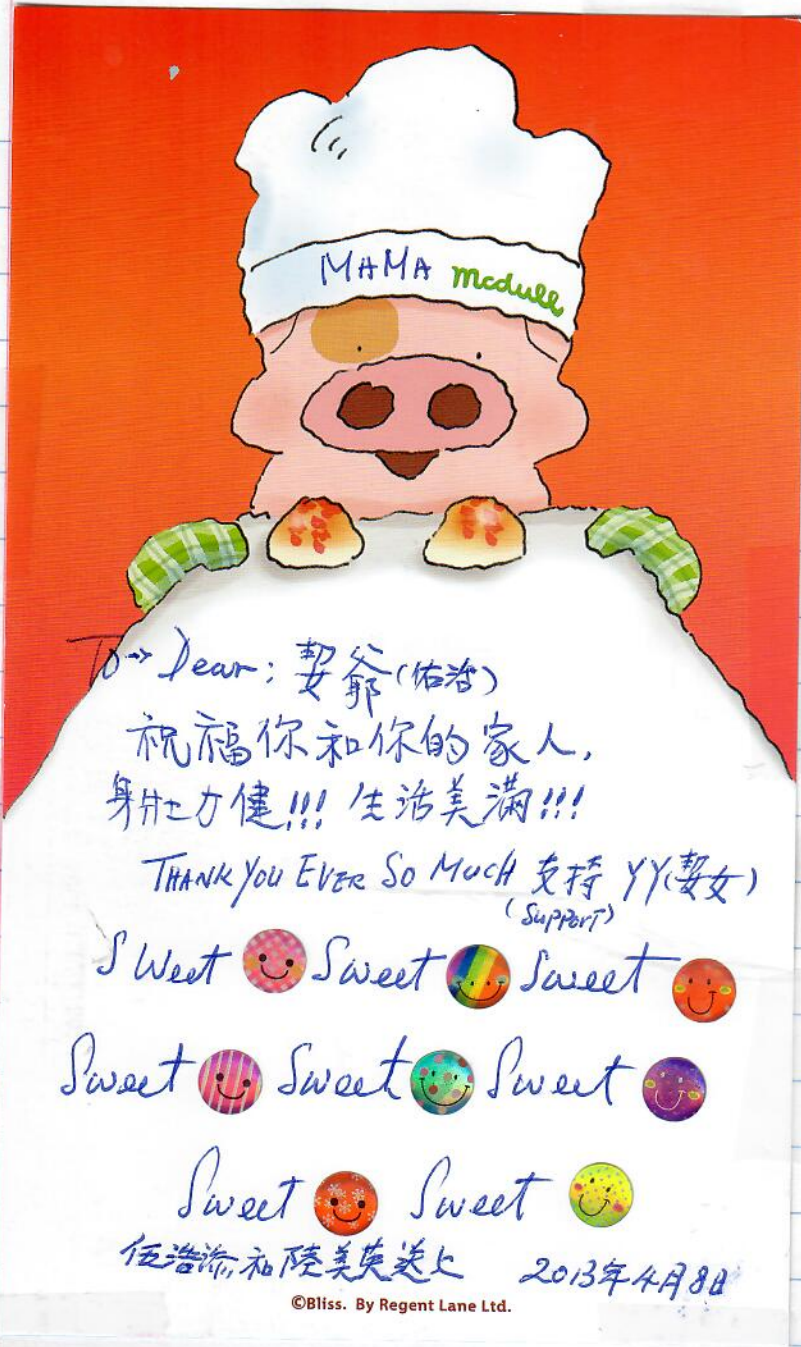 MAMA mcdull
To → Dear: 契爺 (佑浩)
祝福你和你的家人,
身壯力健!!! 生活美滿!!!
THANK YOU EVER SO MUCH 支持 YY(契女)
(SUPPORT)
Sweet Sweet Sweet
Sweet Sweet Sweet
Sweet Sweet
伍浩添和陸美英送上 2013年4月8日
©Bliss. By Regent Lane Ltd.